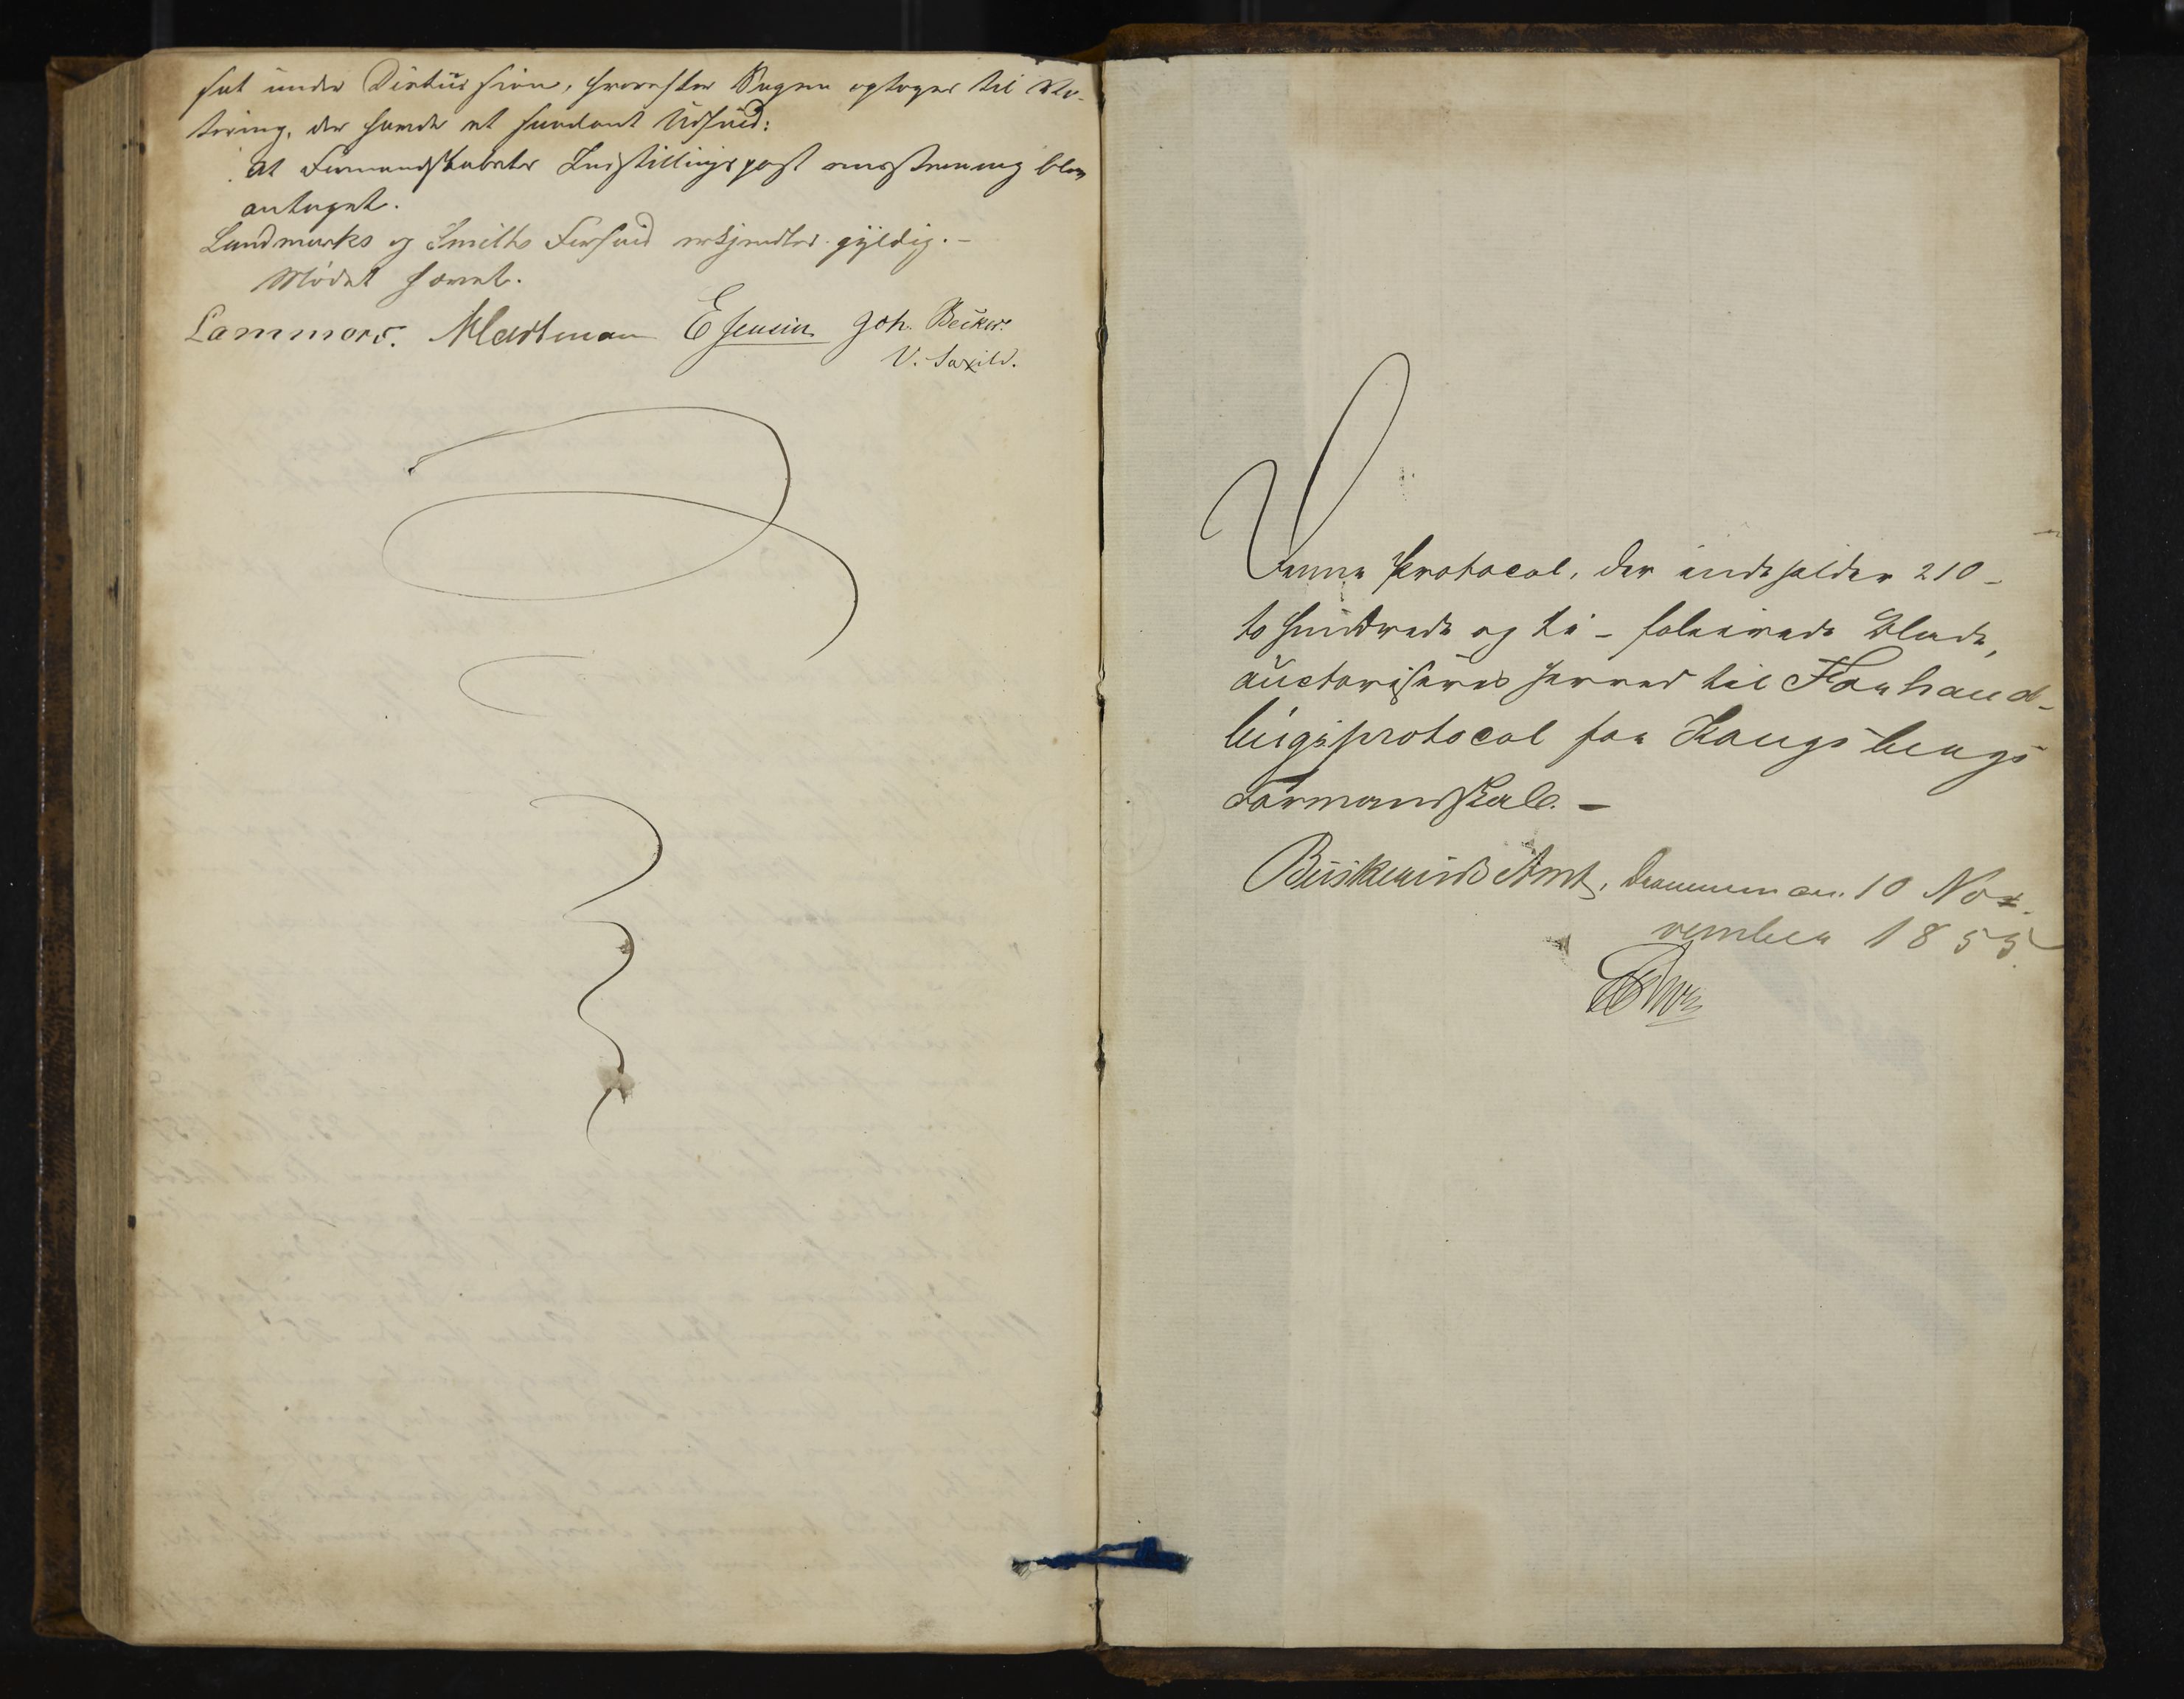 sat under Diskussion, hvorefter Sagen optoges til Vo-
tering, der havde et saadant Udfald:
At Formandskabets Indstillingspost enstemmig blev
antaget.
Landmarks og Smiths Forfald erkjendtes gyldig. -
Mødet hævet.
Lammers. Martman E Jensen Joh. Becker.
V. Saxild.
Denne Protocol, der indeholder 210 -
to hundrede og ti - folierede Blade,
auctoriseres herved til Forhand-
lingsprotocol for Kongsbergs
Formandskab. -
Buskeruds Amt, Drammen den 10 No-
vember 1855